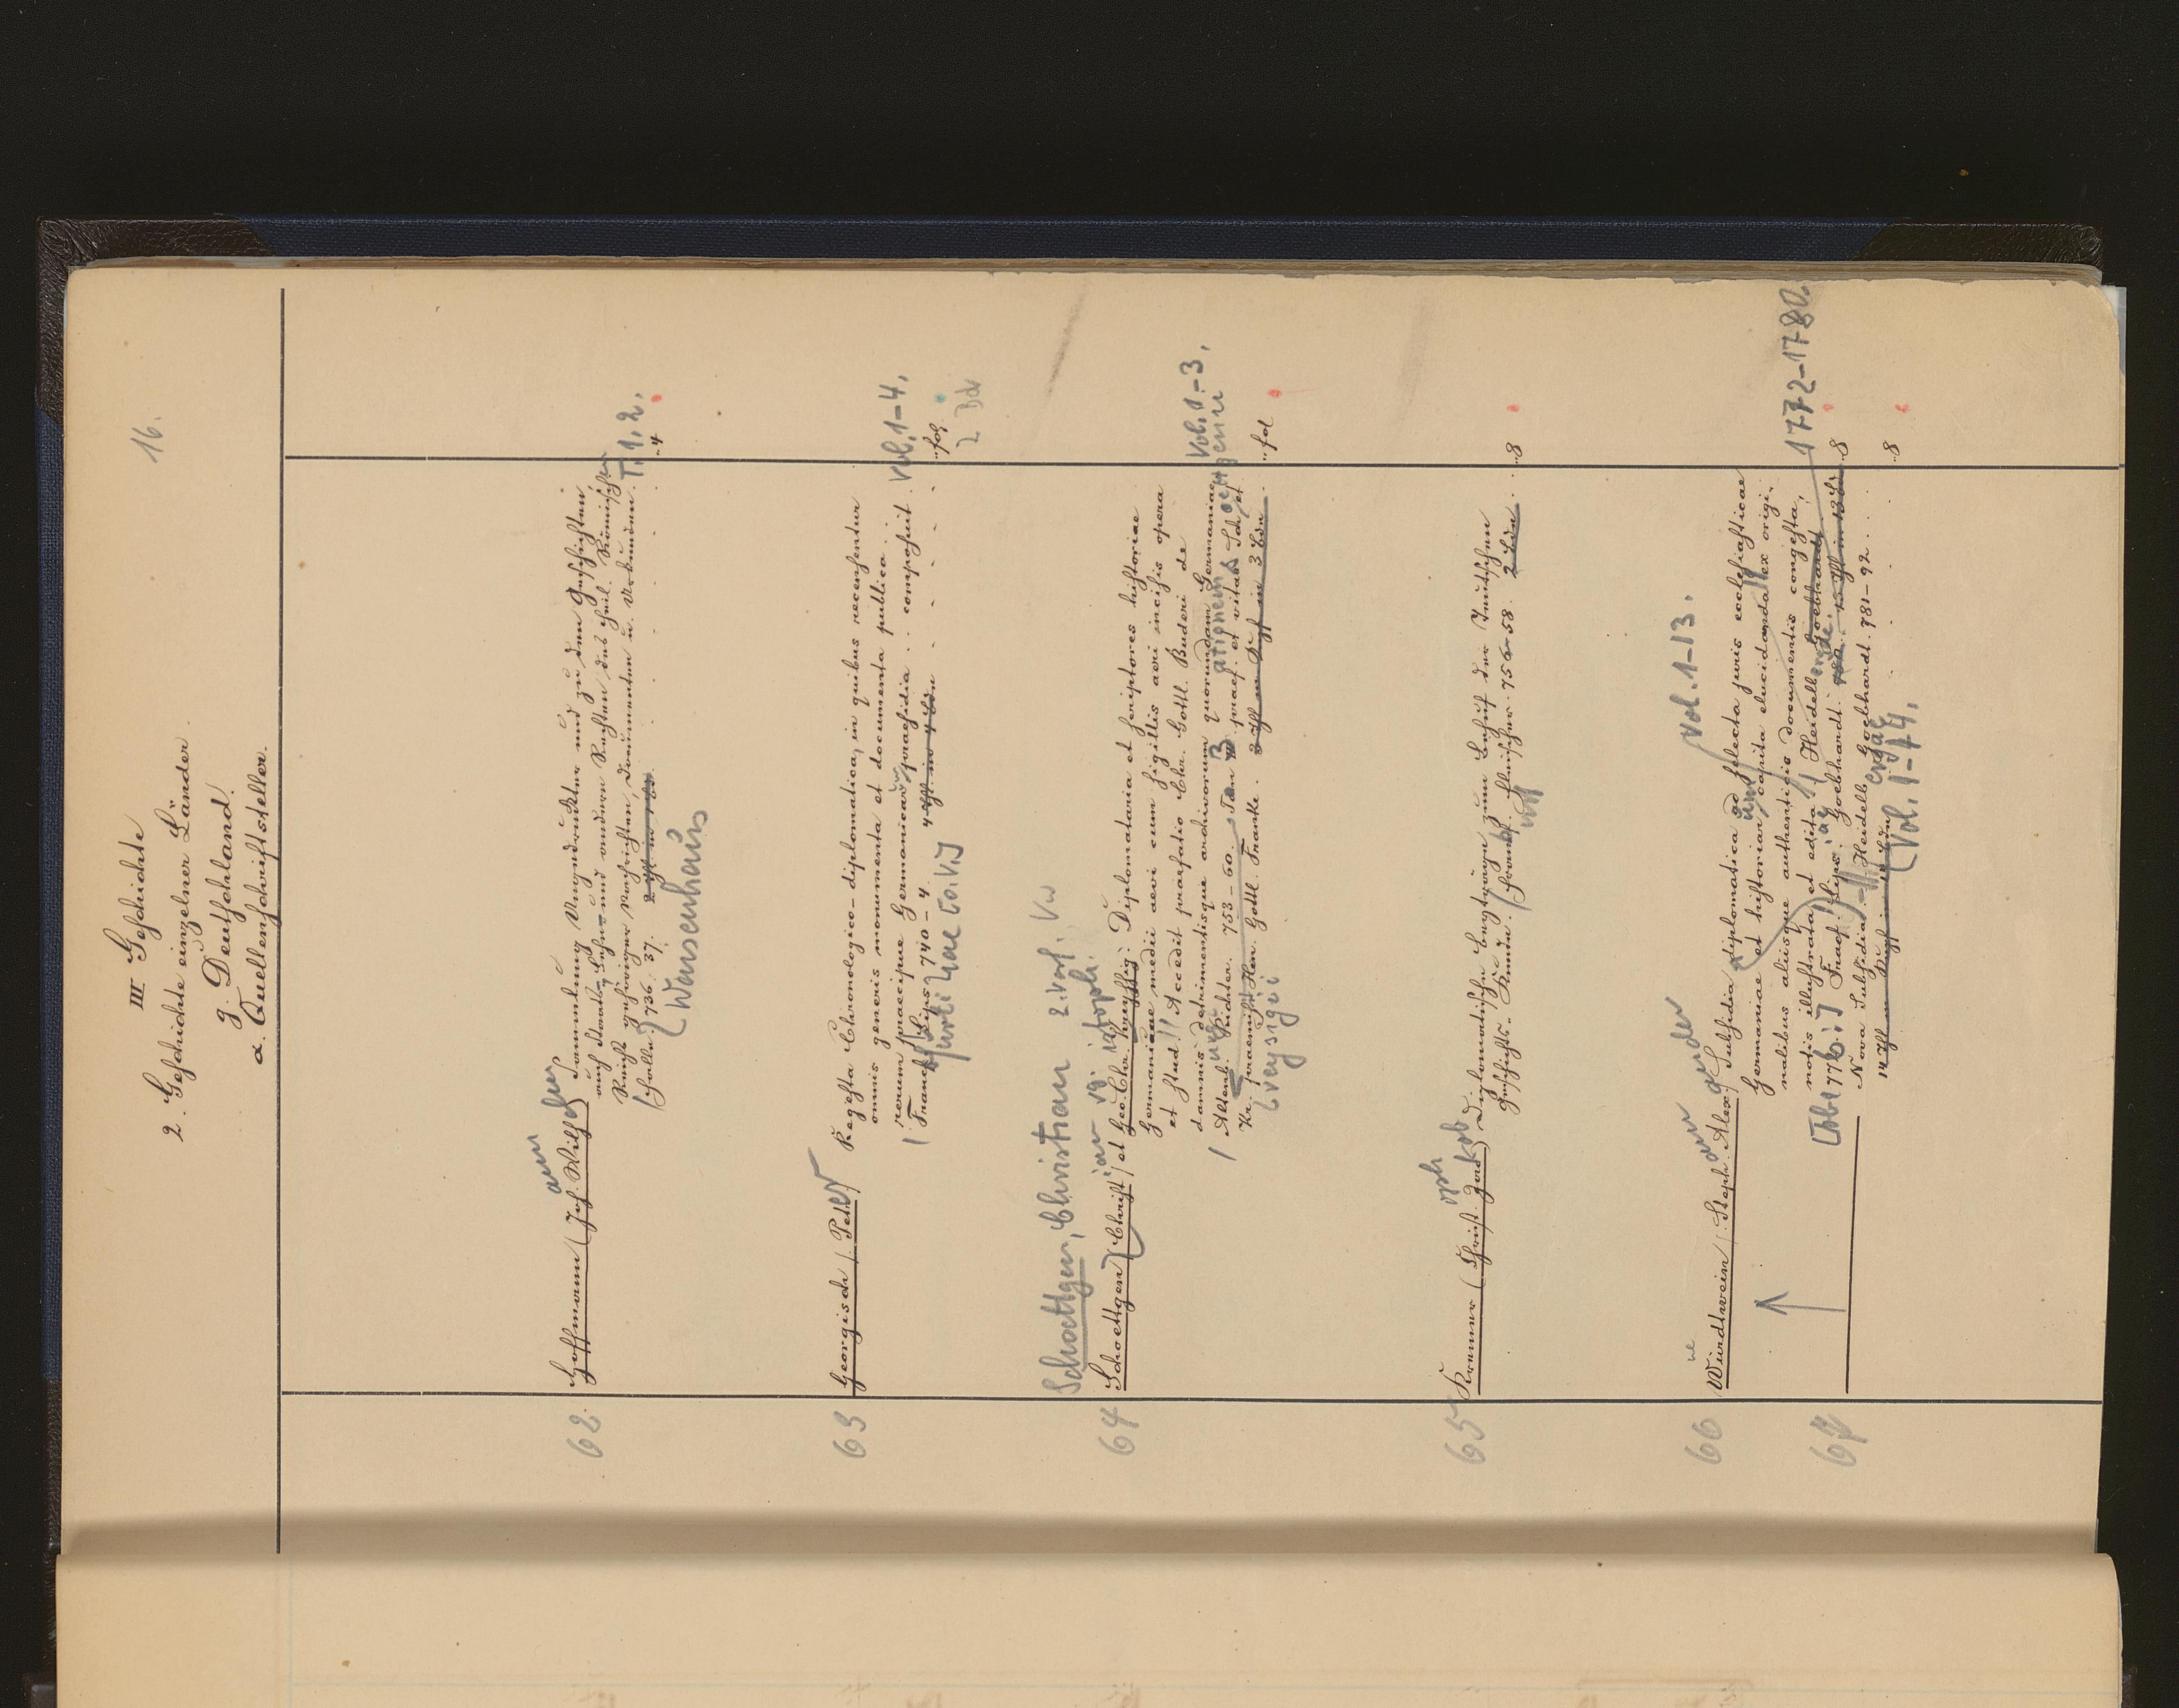 16.
III Geschichte
2. Geschichte einzelner Länder.
g. Deutschland.
α. Quellenschriftsteller.
62. Hoffmann (Joh. Wilh.) Sammlung Ungedruckter und zu den Geschichten,
auch Staats-, Lehn- und andern Rechten des heil. Römischen
Reichs gehöriger Nachrichten, Documenten u. Urkunden. T. 1. 2.
Halle, 736. 37. 4
(Waisenhaus
63 Georgisch, Peter Regesta Chronologico-diplomatica, in quibus recensentur
omnis generis monumenta et documenta publica
rerum praecipue Germanicarum praesidia .. composuit. Vol. 1-4.
Francf. Lips. 740-4. fol.
2 Bde
Schoettgen, Christian 2. Verf. Vw
64 Schoettgen (Christ.) et Geo. Chr. Kreyssig: Diplomataria et scriptores historiae
Germanicae medii aevi cum sigillis aeri incisis opera
et stud. Accedit praefatio Chr. Gottl. Buderi de
damnis detrimentisque archivorum quorundam Germaniae Vol. 1-3.
Altenb. Richter. 753-60. Tom 3 praef. et vitam Sch. et
Kr. praemisit Hen. Gottl. Franke. 3 Thl in 3 Bdn fol
Kreysigii
65 Kremer (Christ. Jacob) Diplomatische Beyträge zum Behuf der Teutschen
Geschichts-Kunde. Frankf. Eslinger 756-58. 2 Bdn 8
Vol. 1-13.
66 Würdtwein, Steph. Alex. Subsidia diplomatica ad selecta juris ecclesiasticae
Germaniae et historiar. capita elucidanda ex origi-
nalibus aliisque authenticis documentis congesta,
notis illustrata et edita. Heidelb. Goebhardt 1772-1780.
Francf. Lips. Goebhardt. 8
67 Nova Subsidia. Heidelb. Goebhardt. 781-92. 8
(Vol. 1-14.